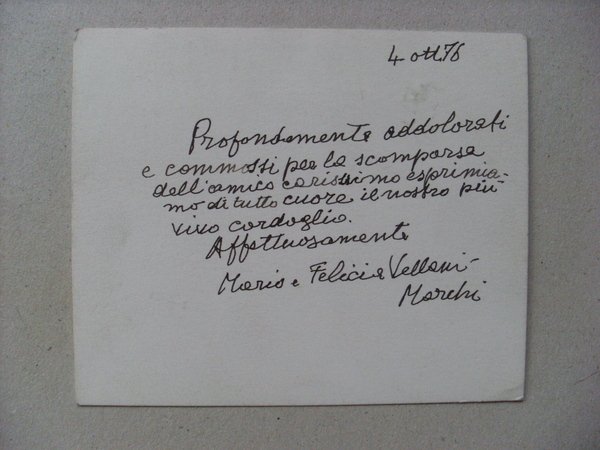 4 ott. 76
Profondamente addolorati
e commossi per la scomparsa
dell'amico carissimo esprimia-
mo di tutto cuore il nostro più
vivo cordoglio.
Affettuosamente
Mario e Felicia Vellani-
Marchi